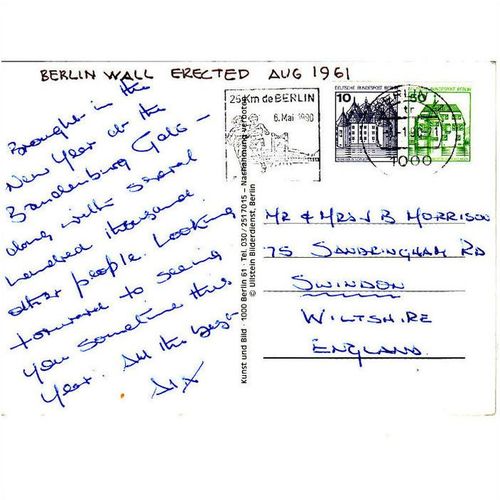 BERLIN WALL ERECTED AUG 1961
Brought in the
New Year at the
Brandenburg Gate –
along with several
hundred thousand
other people. Looking
forward to seeing
you sometime this
Year. All the best
25 Km de BERLIN
6. Mai 1990
DEUTSCHE BUNDESPOST BERLIN
10
DEUTSCHE BUNDESPOST BERLIN
50
BERLIN
1000
Kunst und Bild · 1000 Berlin 61 · Tel. 030/2517015 · Nachahmung verboten
© Ullstein Bilderdienst, Berlin
MR & MRS J B MORRISON
75 SANDRINGHAM RD
SWINDON
WILTSHIRE
ENGLAND.